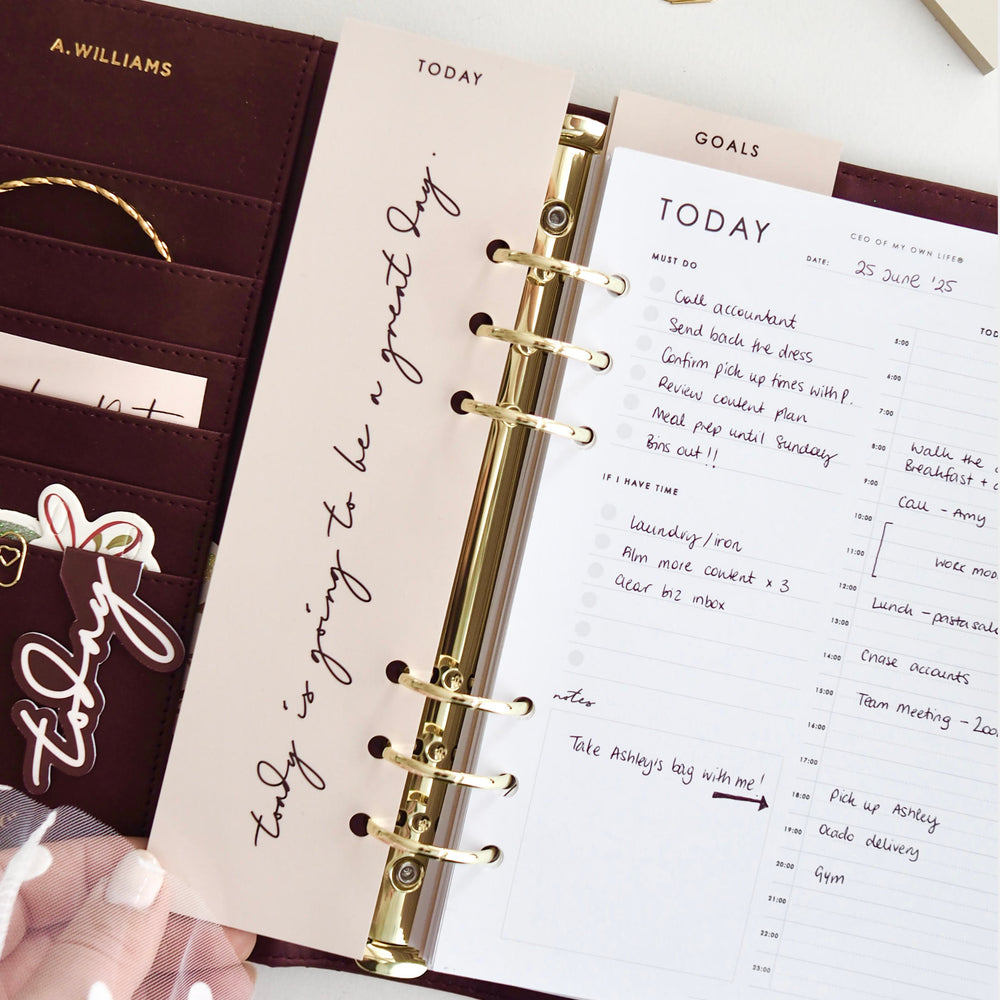 A.WILLIAMS
TODAY
today is going to be a great day.
today
GOALS
TODAY
CEO OF MY OWN LIFE®
DATE: 25 June '25
MUST DO
Call accountant
Send back the dress
Confirm pick up times with P.
Review content plan
Meal prep until Sunday
Bins out!!
IF I HAVE TIME
Laundry/iron
Film more content x 3
Clear biz inbox
notes
Take Ashley's bag with me!
5:00
6:00
7:00
8:00 Walk the
Breakfast +
9:00
Call - Amy
10:00
11:00 WORK
12:00
Lunch - pasta
13:00
14:00 Chase accounts
15:00
Team Meeting -
16:00
17:00
18:00 Pick up Ashley
19:00 Ocado delivery
20:00 Gym
21:00
22:00
23:00